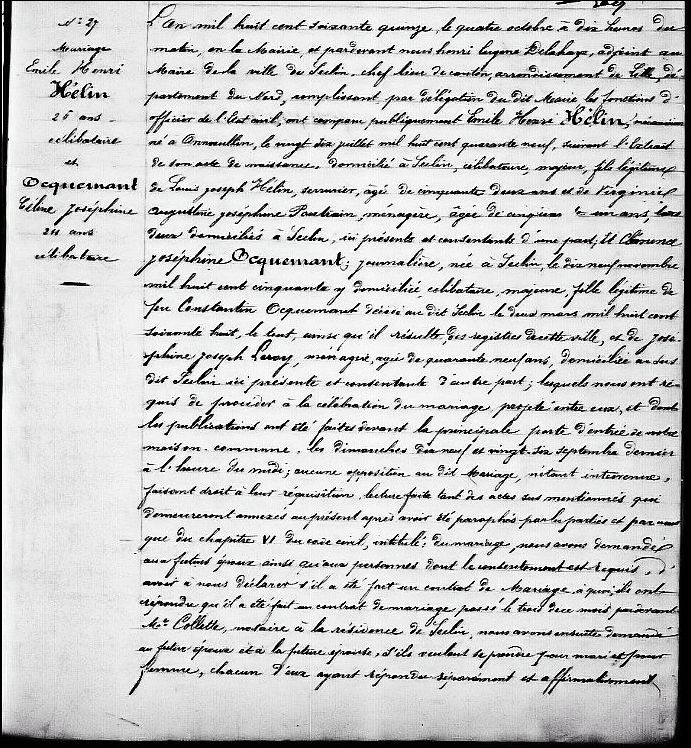 N.° 27
Mariage
Emile Henri
Hélin
26 ans
célibataire
et
Ocquemant
Céline Joséphine
24 ans
célibataire
L'An mil huit cent soixante quinze, le quatre octobre à dix heures du
matin, en la Mairie, et pardevant nous henri Eugène Delahaye, adjoint au
Maire de la ville de Seclin, chef lieu de canton, arrondissement de Lille, dé-
partement du Nord, remplissant par délégation du dit Maire les fonctions d'
officier de l'Etat civil, ont comparu publiquement Emile Henri Hélin,
né à Annoeullin, le vingt dix juillet mil huit cent quarante neuf, suivant l'Extrait
de son acte de naissance, domicilié à Seclin, célibataire, majeur, fils légitime
de Louis joseph Hélin, serrurier, âgé de cinquante deux ans et de Virginie
augustine joséphine ménagère, âgée de cinquante un ans, tous
deux domiciliés à Seclin, ici présents et consentants d'une part, Et
joséphine Ocquemant; journalière, née à Seclin, le dix neuf novembre
mil huit cent cinquante y domiciliée célibataire, majeure, fille légitime de
feu Constantin Ocquemant décédé au dit Seclin le deux mars mil huit cent
soixante huit, le tout, ainsi qu'il résulte des registres de cette ville, et de José-
phine joseph Leroy, ménagère, agée de quarante neuf ans, domiciliée au sus
dit Seclin ici présente et consentante d'autre part; lesquels nous ont re-
quis de procéder à la célébration du mariage projeté entre eux, et dont
les publications ont été faites devant la principale porte d'entrée de notre
maison commune, les dimanches dix neuf et vingt-six septembre dernier
à l'heure du midi; aucune opposition au dit Mariage, n'étant intervenue,
faisant droit à leur réquisition, lecture faite tant des actes sus mentionnés qui
demeureront annexés au présent après avoir été paraphés par les parties et par nous
que du chapitre VI du code civil, intitulé: du mariage, nous avons demandé
aux futurs époux ainsi qu'aux personnes dont le consentement est requis, d'
avoir à nous déclarer s'il a été fait un contrat de Mariage, à quoi ils ont
répondu qu'il a été fait un contrat de mariage passé le trois de ce mois pardevant
M.e Collette, notaire à la résidence de Seclin, nous avons ensuite demandé
au futur époux et à la future épouse, s'ils veulent se prendre pour mari et pour
femme, chacun d'eux ayant répondu séparément et affirmativement